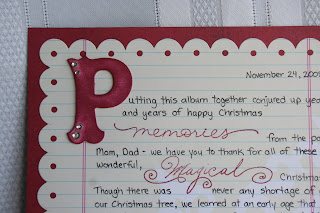 November 24, 200
Putting this album together conjured up yea
and years of happy Christmas
memories from the pa
Mom, Dad - we have you to thank for all of these
wonderful, Magical Christm
Though there was never any shortage of
our Christmas tree, we learned at early age that